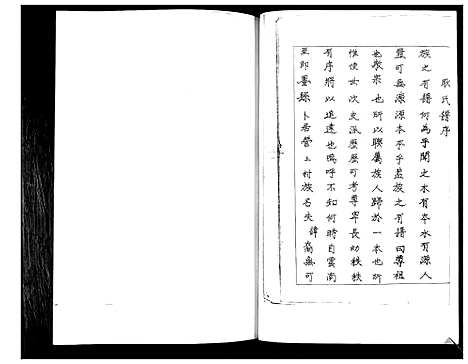 耿氏譜序
族之有譜何為乎聞之木有本水有源人
豈可無源源本本乎蓋族之有譜曰尊祖
也敬宗也所以聯屬族人歸於一本也所
惟使世次支派歷歷可考尊卑長幼秩秩
有序將以追遠也嗚呼不知何時自雲南
至即墨縣卜居營上村族名失諱裔無可